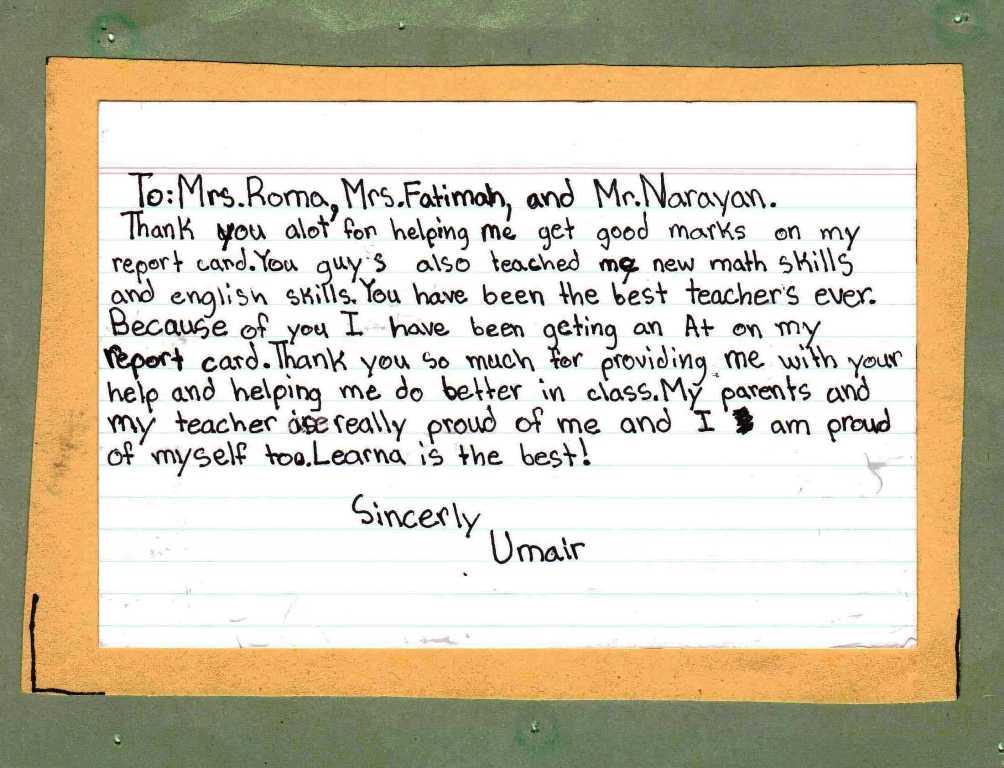 To: Mrs. Roma, Mrs. Fatimah, and Mr. Narayan.
Thank you alot for helping me get good marks on my
report card. You guy's also teached me new math skills
and english skills. You have been the best teacher's ever.
Because of you I have been geting an A+ on my
report card. Thank you so much for providing me with your
help and helping me do better in class. My parents and
my teacher are really proud of me and I am proud
of myself too. Learna is the best!
Sincerly
Umair